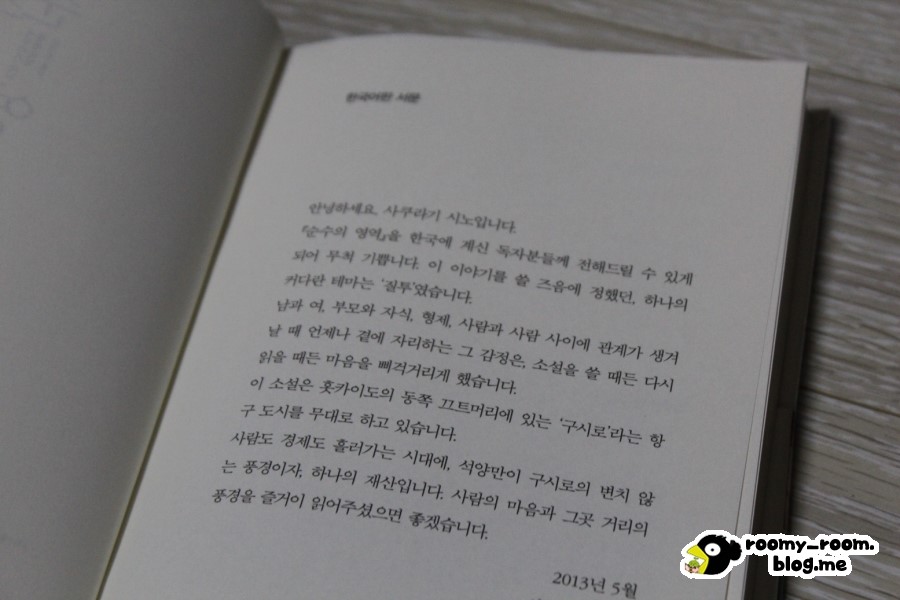 한국어판 서문
안녕하세요. 사쿠라기 시노입니다.
『순수의 영역』을 한국에 계신 독자분들께 전해드릴 수 있게
되어 무척 기쁩니다. 이 이야기를 쓸 즈음에 정했던, 하나의
커다란 테마는 ‘질투’였습니다.
남과 여, 부모와 자식, 형제, 사람과 사람 사이에 관계가 생겨
날 때 언제나 곁에 자리하는 그 감정은, 소설을 쓸 때든 다시
읽을 때든 마음을 삐걱거리게 했습니다.
이 소설은 홋카이도의 동쪽 끄트머리에 있는 ‘구시로’라는 항
구 도시를 무대로 하고 있습니다.
사람도 경제도 흘러가는 시대에, 석양만이 구시로의 변치 않
는 풍경이자, 하나의 재산입니다. 사람의 마음과 그곳 거리의
풍경을 즐거이 읽어주셨으면 좋겠습니다.
2013년 5월
roomy_room.
blog.me